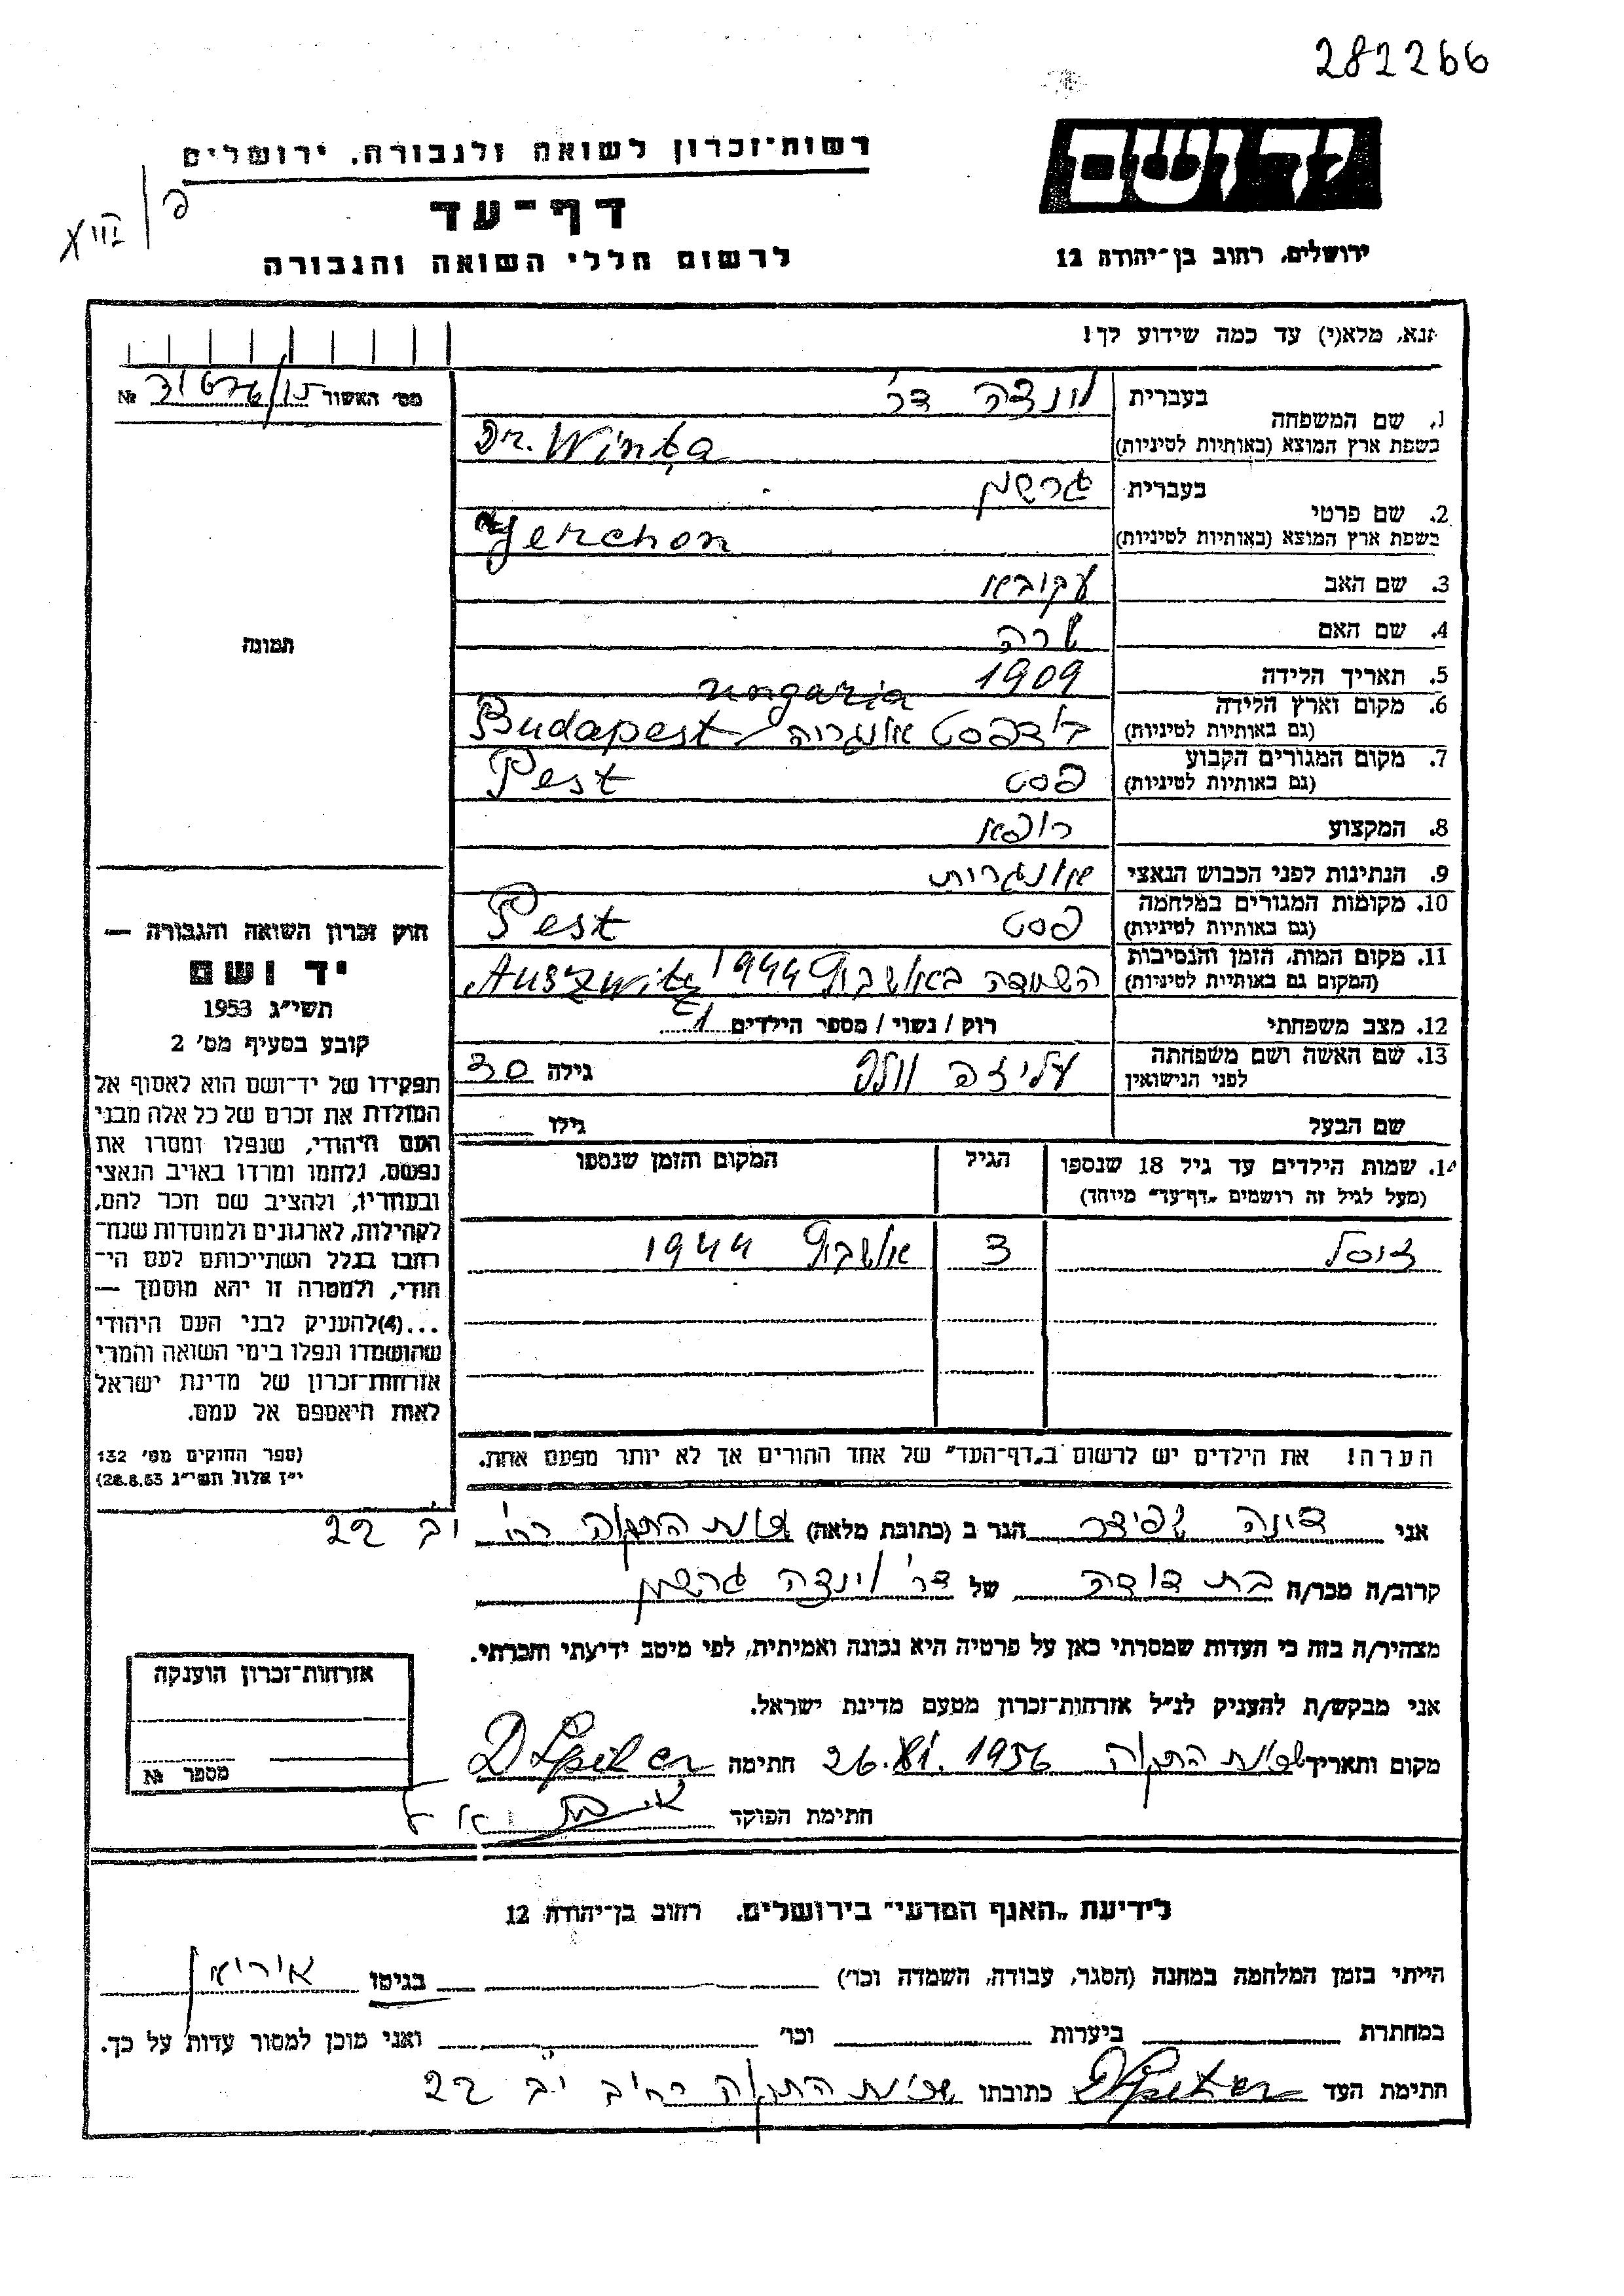 282266
רשות־זכרון לשואה ולגבורה, ירושלים
יד ושם
דף־עד
לרשום חללי השואה והגבורה
ירושלים, רחוב בן־יהודה 12
אנא, מלא(י) עד כמה שידוע לך!
מס׳ האשור №
1. שם המשפחה
בעברית
דר׳
בשפת ארץ המוצא (באותיות לטיניות) Dr. Winka
2. שם פרטי
בעברית גרשון
בשפת ארץ המוצא (באותיות לטיניות) Gerchon
3. שם האב עקיבא
4. שם האם שרה
5. תאריך הלידה 1909
ungaria
6. מקום וארץ הלידה (גם באותיות לטיניות) בודפסט אונגריה / Budapest
7. מקום המגורים הקבוע (גם באותיות לטיניות) פסט Pest
8. המקצוע רופא
9. הנתינות לפני הכבוש הנאצי אונגרית
10. מקומות המגורים במלחמה (גם באותיות לטיניות) פסט Pest
11. מקום המות, הזמן והנסיבות (המקום גם באותיות לטיניות) השמדה באושביץ 1944 Auszwitz
12. מצב משפחתי רוק / נשוי / מספר הילדים 1
13. שם האשה ושם משפחתה לפני הנישואין עליזה וולף גילה 30
שם הבעל גילו
תמונה
חוק זכרון השואה והגבורה —
יד ושם
תשי״ג 1953
קובע בסעיף מס׳ 2
תפקידו של יד־ושם הוא לאסוף אל
המולדת את זכרם של כל אלה מבני
העם היהודי, שנפלו ומסרו את
נפשם, נלחמו ומרדו באויב הנאצי
ובעוזריו, ולהציב שם וזכר להם,
לקהילות, לארגונים ולמוסדות שנח־
רבו בגלל השתייכותם לעם הי־
הודי, ולמטרה זו יהא מוסמך —
...(4)להעניק לבני העם היהודי
שהושמדו ונפלו בימי השואה והמרי
אזרחות־זכרון של מדינת ישראל
לאות היאספם אל עמם.
(ספר החוקים מס׳ 132
י״ז אלול תשי״ג 28.8.53)
14. שמות הילדים עד גיל 18 שנספו הגיל המקום והזמן שנספו
(מעל לגיל זה רושמים „דף־עד״ מיוחד)
3 אושביץ 1944
הערה! את הילדים יש לרשום ב„דף־העד״ של אחד ההורים אך לא יותר מפעם אחת.
אני דינה שפיזר הגר ב (כתובת מלאה) שכונת התקוה רח׳ יב 22
קרוב/ה מכר/ה בת דודה של דר׳ וינצה גרשון
מצהיר/ה בזה כי העדות שמסרתי כאן על פרטיה היא נכונה ואמיתית, לפי מיטב ידיעתי והכרתי.
אני מבקש/ת להעניק לנ״ל אזרחות־זכרון מטעם מדינת ישראל.
מקום ותאריך שכונת התקוה 26.XI.1956 חתימה
חתימת הפוקד
אזרחות־זכרון הוענקה
מספר №
לידיעת „האגף המדעי״ בירושלים, רחוב בן־יהודה 12
הייתי בזמן המלחמה במחנה (הסגר, עבודה, השמדה וכו׳) בגיטו
במחתרת ביערות וכו׳ ואני מוכן למסור עדות על כך.
חתימת העד כתובתו שכונת התקוה רחוב יב 22